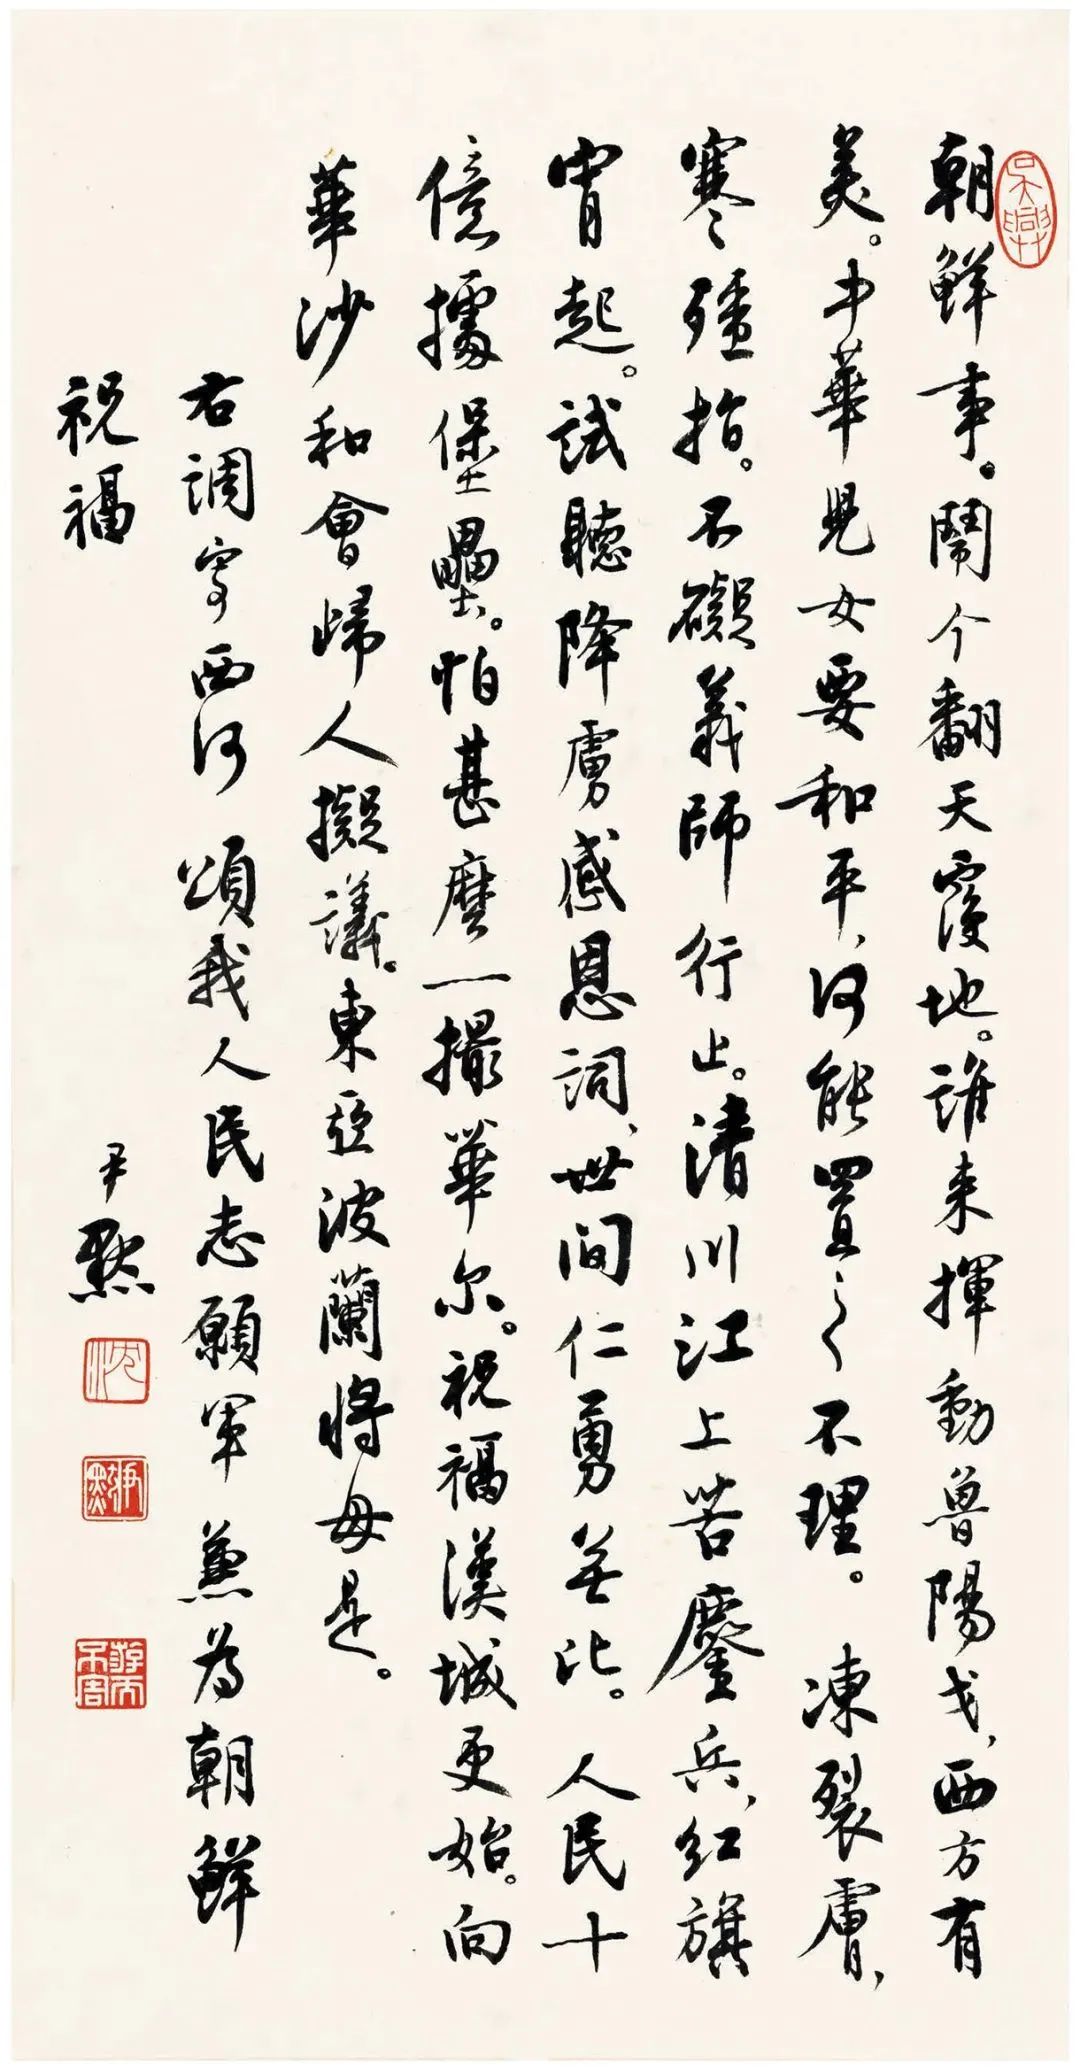 吳興
朝鮮事。鬧个翻天覆地。誰来揮動魯陽戈、西方有
美。中華児女要和平、何能置之不理。 凍裂膚、
寒殭指。不礙義師行止。清川江上苦鏖兵、紅旗
宵起。試聽降虜感恩詞、世间仁勇無比。 人民十
億據堡壘。怕甚麼一撮華尔。祝福漢城更始。向
華沙和會歸人擬議。東亞波蘭將毋是。
右調寄西河 頌我人民志願軍 兼為朝鮮
祝福
尹默
沈
尹默